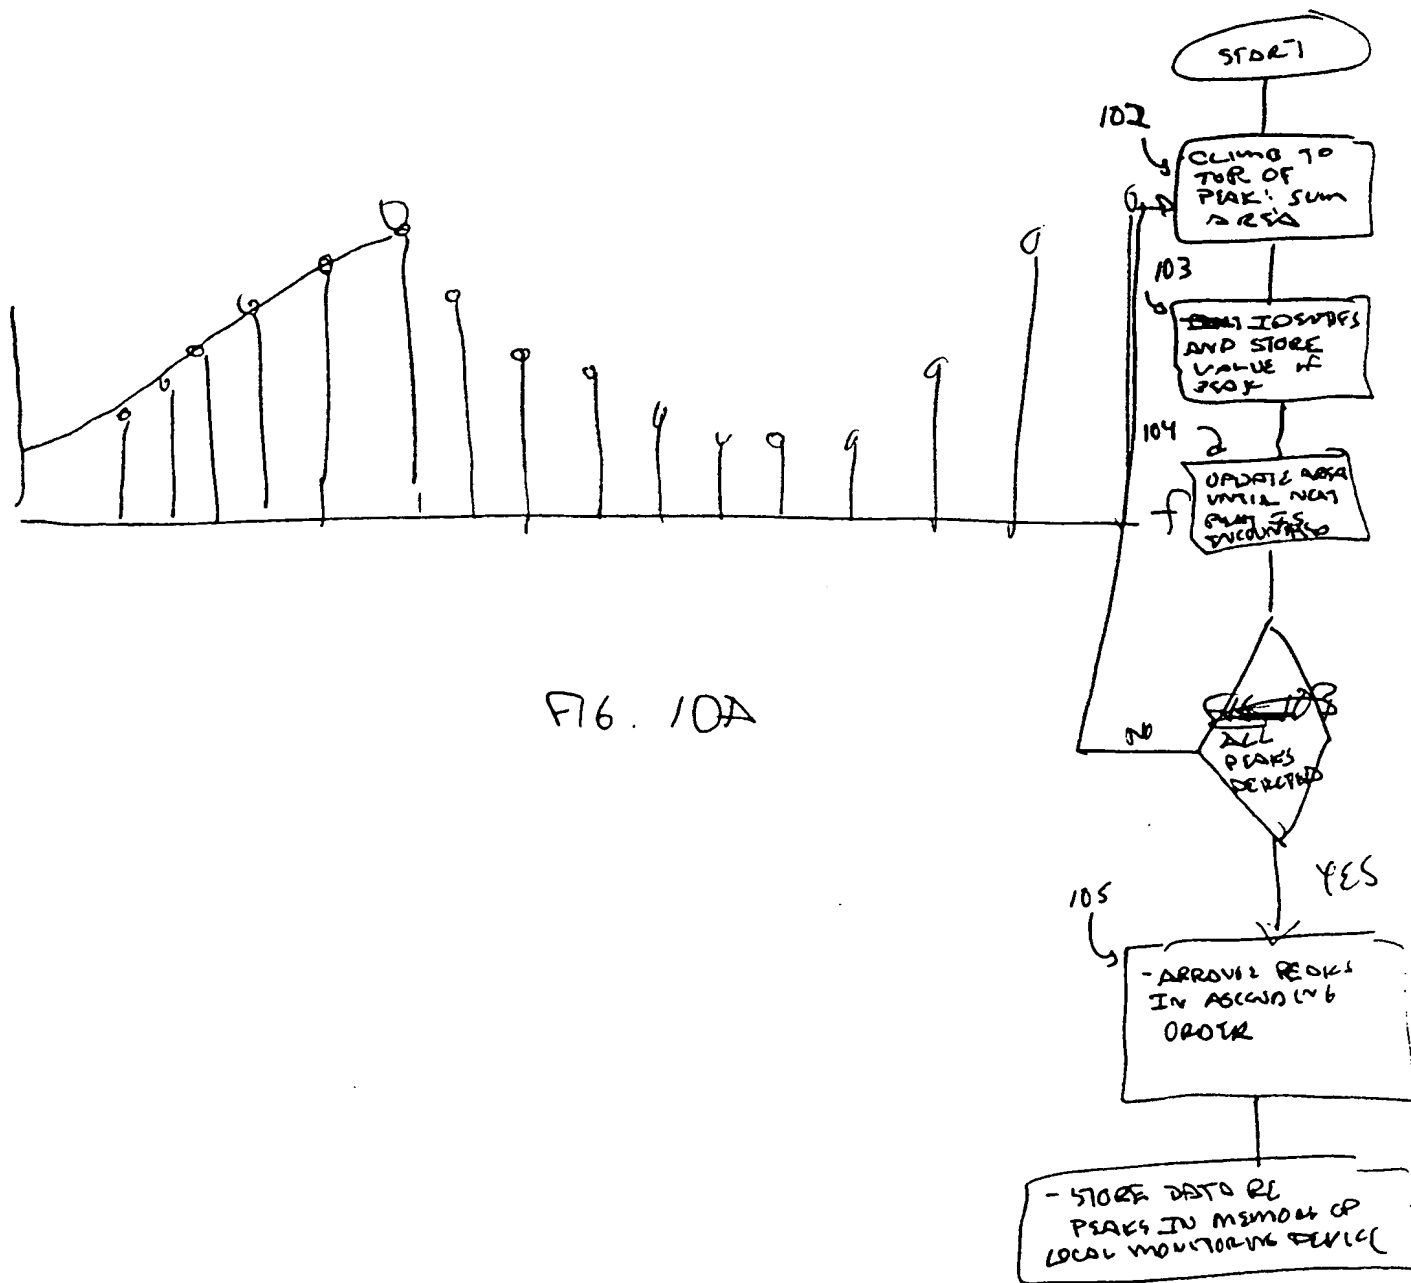 START
102
CLIMB TO
TOP OF
PEAK: SUM
AREA
103
IDENTIFY
AND STORE
VALUE OF
PEAK
104
UPDATE AREA
UNTIL NEXT
PEAK IS
ENCOUNTERED
f
FIG. 10A
NO
ALL
PEAKS
DETECTED
YES
105
- ARRANGE PEAKS
IN ASCENDING
ORDER
- STORE DATA RE
PEAKS IN MEMORY OF
LOCAL MONITORING DEVICE